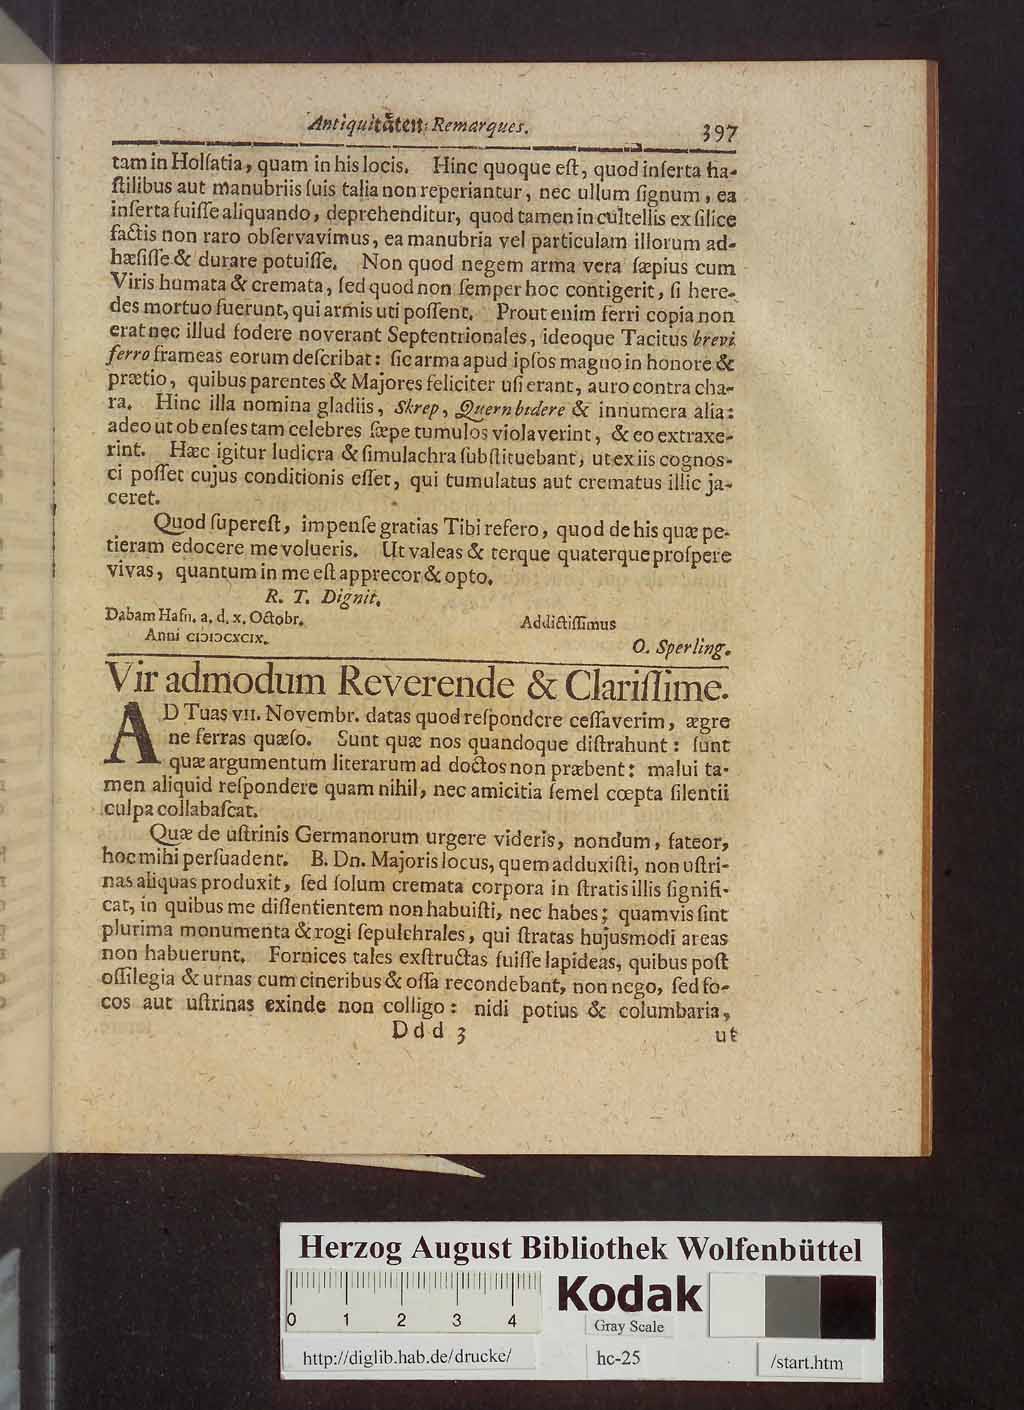 Antiquitäten-Remarques. 397
tam in Holſatia, quam in his locis. Hinc quoque eſt, quod inſerta ha-
ſtilibus aut manubriis ſuis talia non reperiantur, nec ullum ſignum, ea
inſerta fuiſſe aliquando, deprehenditur, quod tamen in cultellis ex ſilice
factis non raro obſervavimus, ea manubria vel particulam illorum ad-
hæſiſſe & durare potuiſſe. Non quod negem arma vera ſæpius cum
Viris humata & cremata, ſed quod non ſemper hoc contigerit, ſi here-
des mortuo fuerunt, qui armis uti poſſent. Prout enim ferri copia non
erat nec illud fodere noverant Septentrionales, ideoque Tacitus brevi
ferro frameas eorum deſcribat: ſic arma apud ipſos magno in honore &
prætio, quibus parentes & Majores feliciter uſi erant, auro contra cha-
ra. Hinc illa nomina gladiis, Skrep, Quernbidere & innumera alia:
adeo ut ob enſes tam celebres ſæpe tumulos violaverint, & eo extraxe-
rint. Hæc igitur ludicra & ſimulachra ſubſtituebant, ut ex iis cognoſ-
ci poſſet cujus conditionis eſſet, qui tumulatus aut crematus illic ja-
ceret.
Quod ſupereſt, impenſe gratias Tibi refero, quod de his quæ pe-
tieram edocere me volueris. Ut valeas & terque quaterque proſpere
vivas, quantum in me eſt apprecor & opto.
R. T. Dignit.
Dabam Hafn. a. d. x. Octobr. Addictiſſimus
Anni cIɔIɔcxcIx.
O. Sperling.
Vir admodum Reverende & Clariſſime.
AD Tuas vII. Novembr. datas quod reſpondere ceſſaverim, ægre
ne ferras quæſo. Sunt quæ nos quandoque diſtrahunt: ſunt
quæ argumentum literarum ad doctos non præbent: malui ta-
men aliquid reſpondere quam nihil, nec amicitia ſemel cœpta ſilentii
culpa collabaſcat.
Quæ de uſtrinis Germanorum urgere videris, nondum, fateor,
hoc mihi perſuadent. B. Dn. Majoris locus, quem adduxiſti, non uſtri-
nas aliquas produxit, ſed ſolum cremata corpora in ſtratis illis ſignifi-
cat, in quibus me diſſentientem non habuiſti, nec habes; quamvis ſint
plurima monumenta & rogi ſepulchrales, qui ſtratas hujusmodi areas
non habuerunt. Fornices tales exſtructas fuiſſe lapideas, quibus poſt
oſſilegia & urnas cum cineribus & oſſa recondebant, non nego, ſed fo-
cos aut uſtrinas exinde non colligo: nidi potius & columbaria,
Ddd 3 ut
Herzog August Bibliothek Wolfenbüttel
0 1 2 3 4
Kodak
Gray Scale
http://diglib.hab.de/drucke/ hc-25 /start.htm